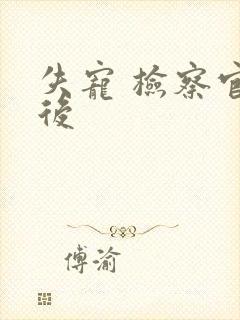 失寵 檢察官
後
傅渝